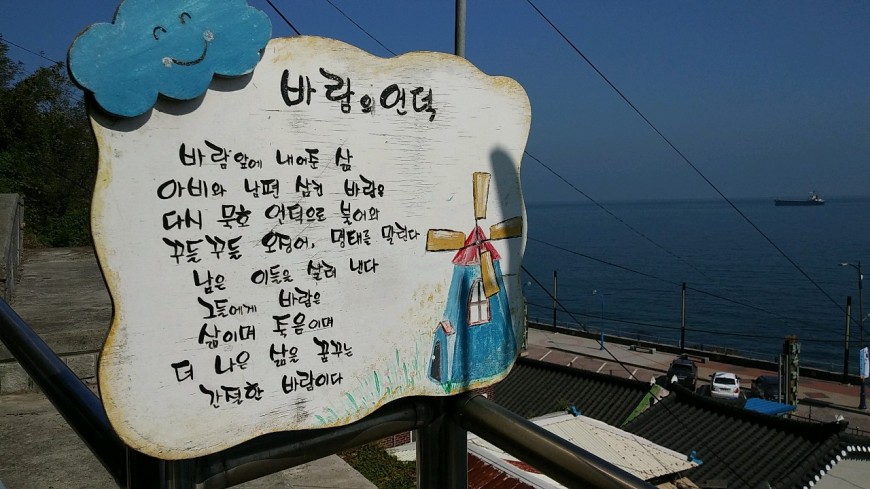 바람의 언덕
바람 앞에 내어준 삶
아비와 남편 삼킨 바람은
다시 묵호 언덕으로 불어와
꾸들꾸들 오징어, 명태를 말린다
남은 이들을 살려 낸다
그들에게 바람은
삶이며 죽음이며
더 나은 삶을 꿈꾸는
간절한 바람이다